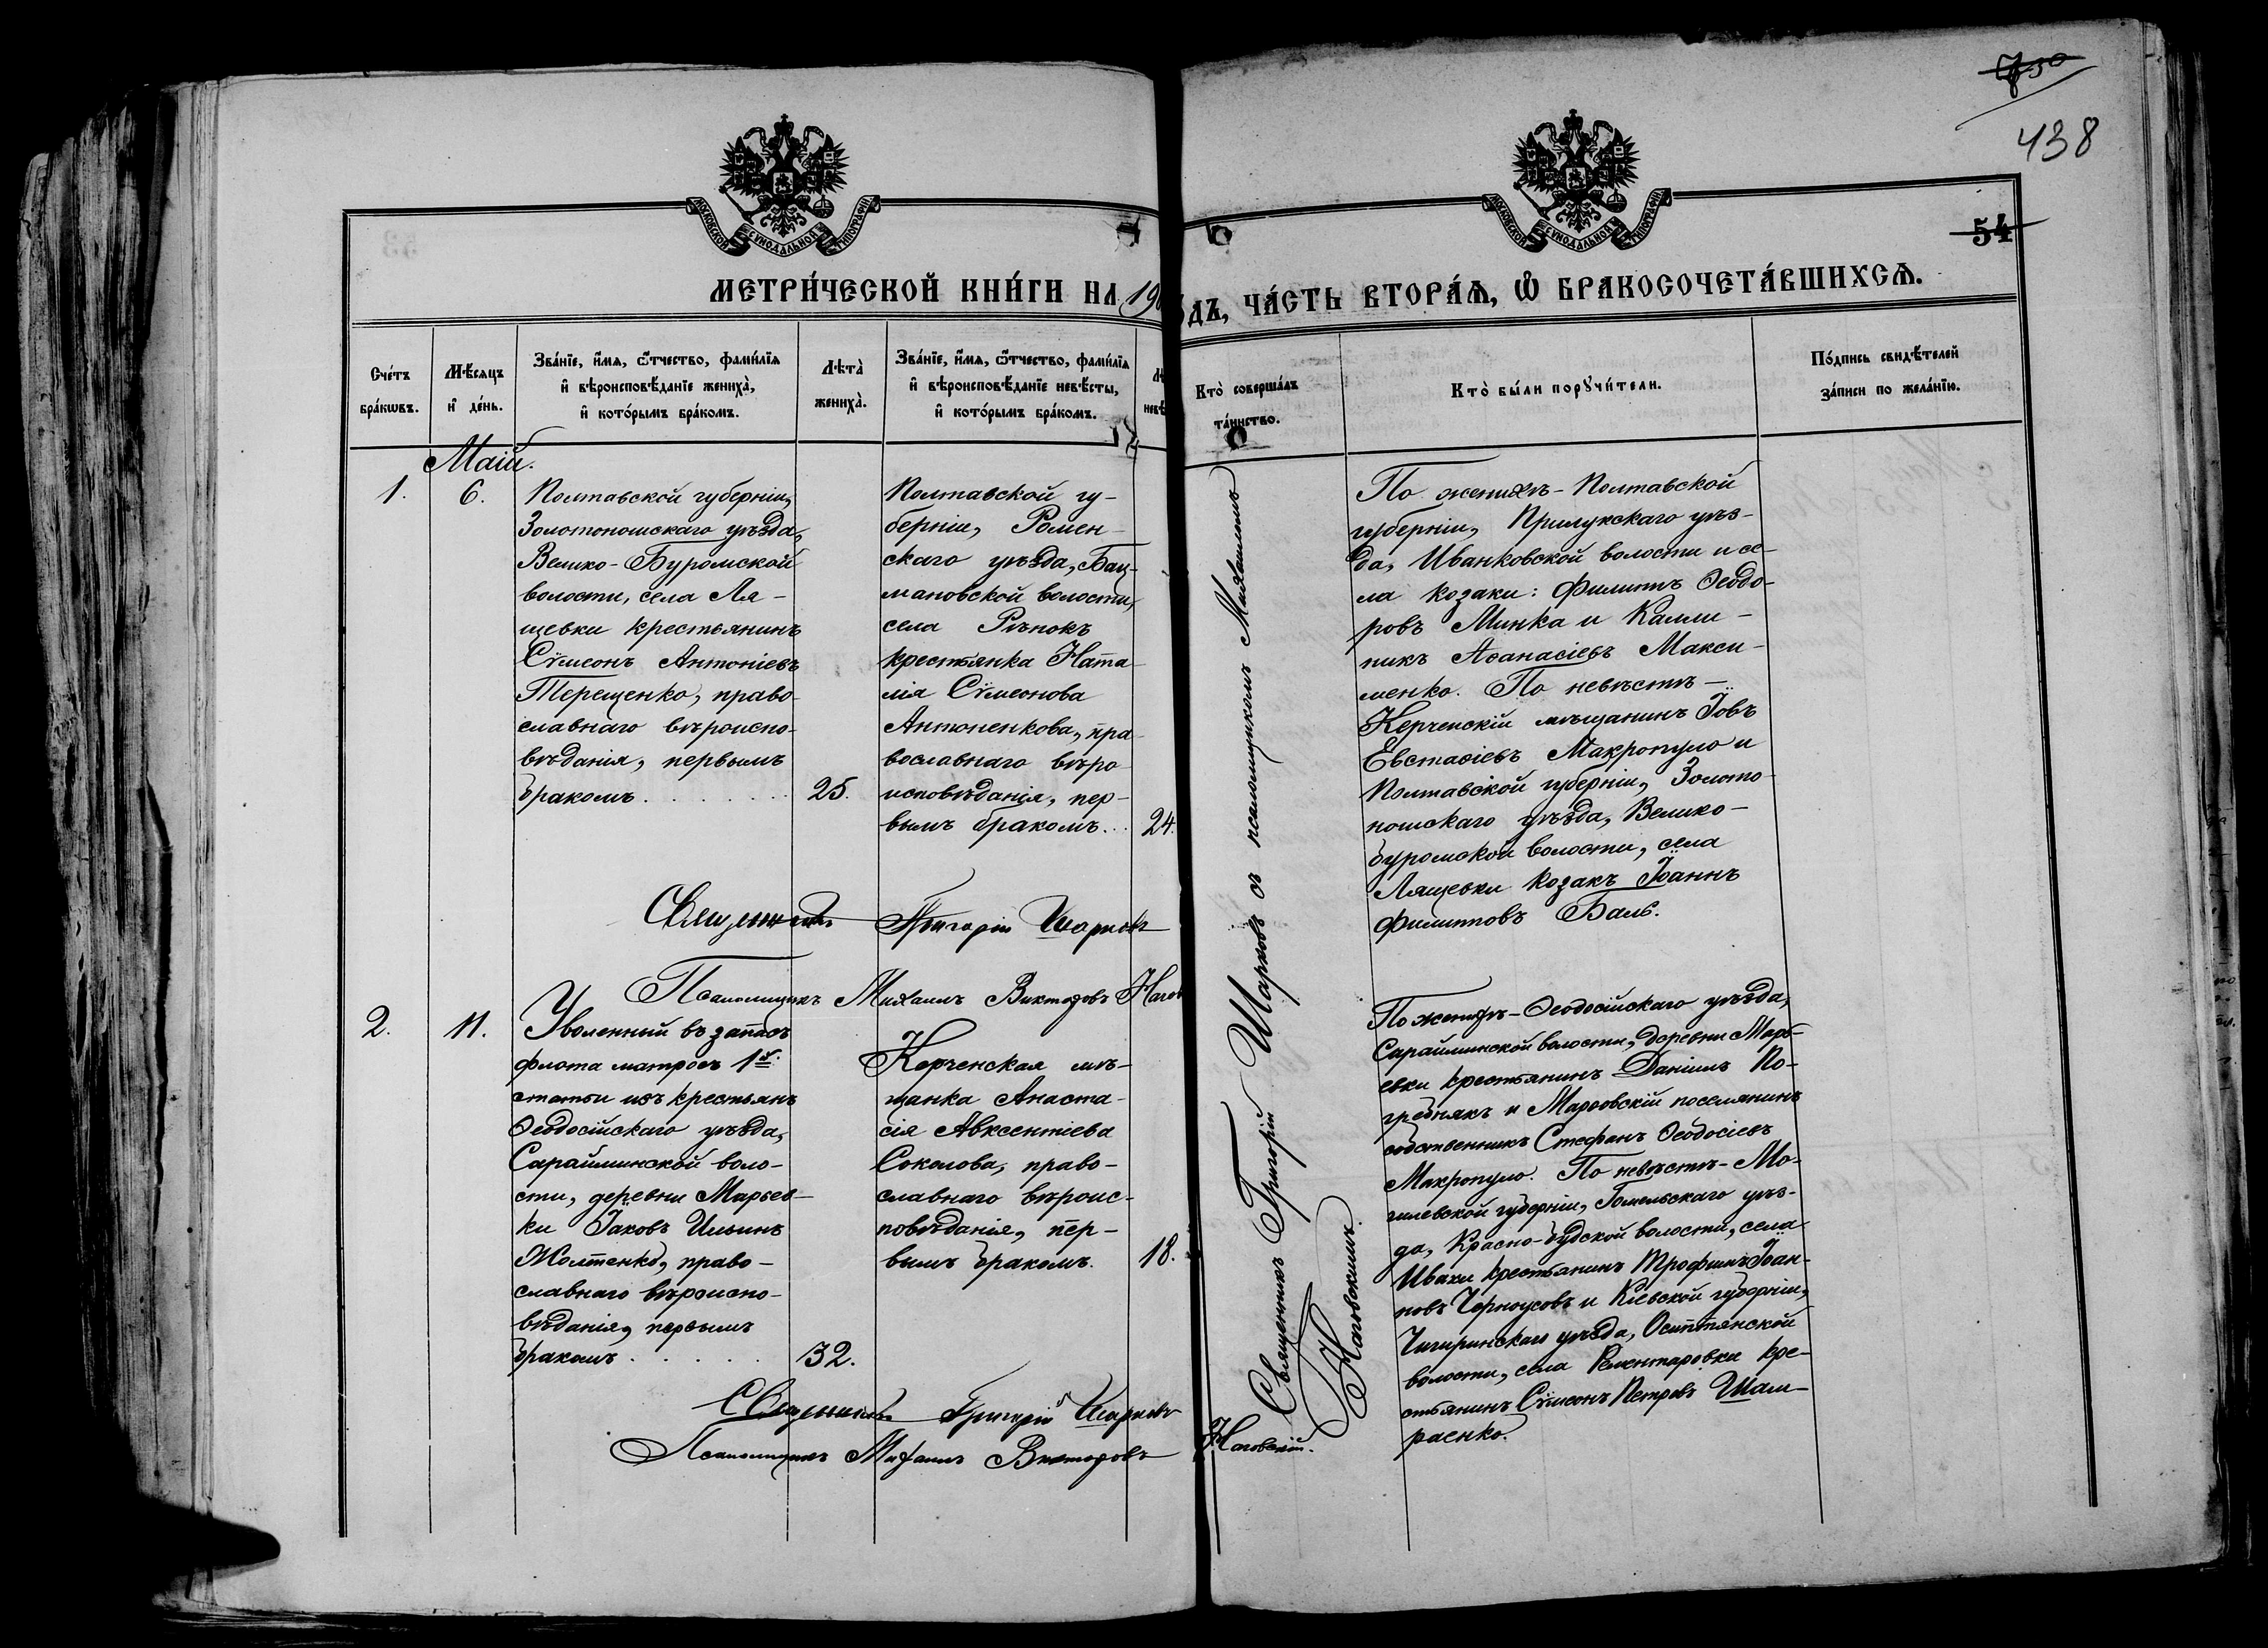 750
438
МОСКОВСКОЙ СѴНОДАЛЬНОЙ ТИПОГРАФІИ
МОСКОВСКОЙ СѴНОДАЛЬНОЙ ТИПОГРАФІИ
54
МЕТРИ́ЧЕСКОЙ КНИ́ГИ НА 190
ОДЪ, ЧА́СТЬ ВТОРА́Ѧ, Ѽ БРАКОСОЧЕТА́ВШИХСѦ.
Сче́тъ
бра́кѡвъ.
Мѣ́сяцъ
и҆ де́нь.
Зва́нїе, и҆́мя, ѻ҆́тчество, фами́лїя
и҆ вѣроисповѣ́данїе жениха̀,
и҆ кото́рымъ бра́комъ.
Лѣта̀
жениха̀.
Зва́нїе, и҆́мя, ѻ҆́тчество, фами́лїя
и҆ вѣроисповѣ́данїе невѣ́сты,
и҆ кото́рымъ бра́комъ.
Лѣ
невѣ
Кто̀ соверша́лъ
та́инство.
Кто̀ бы́ли порꙋчи́тели.
По́дпись свидѣ́телей
за́писи по жела́нїю.
Маій.
1.
6.
Полтавской губерніи,
Золотоношскаго уѣзда,
Велико-Буромской
волости, села Ля-
щевки крестьянинъ
Сѵмеонъ Антоніевъ
Терещенко, право-
славнаго вѣроиспо-
вѣданія, первымъ
бракомъ.
25.
Полтавской гу-
берніи, Ромен-
скаго уѣзда, Бац-
мановской волости,
села Рѣпокъ
крестьянка Ната-
лія Сѵмеонова
Антоненкова, пра-
вославнаго вѣро
исповѣданія, пер-
вымъ бракомъ...
24.
Священникъ Григорій Шарковъ
Псаломщикъ Михаилъ Викторовъ Нагов
Священникъ Григорій Шарковъ съ псаломщикомъ Михаиломъ
Наговскимъ.
По женихѣ - Полтавской
губерніи, Прилукскаго уѣз-
да, Иванковской волости и се-
ла козаки: Филиппъ Ѳеодо-
ровъ Минка и Калли-
никъ Аѳанасіевъ Макси-
менко. По невѣстѣ -
Керченскій мѣщанинъ Іовъ
Евстаѳіевъ Макропуло и
Полтавской губерніи, Золото-
ношскаго уѣзда, Велико-
буромской волости, села
Лящевки козакъ Іоаннъ
Филипповъ Баль.
2.
11.
Уволенный въ запасъ
флота матросъ 1й
статьи изъ крестьянъ
Ѳеодосійскаго уѣзда,
Сарайминской воло-
сти, деревни Марьев-
ки Іаковъ Ильинъ
Жолтенко, право-
славнаго вѣроиспо-
вѣданія, первымъ
бракомъ.
32.
Керченская мѣ-
щанка Анаста-
сія Авксентіева
Соколова, право-
славнаго вѣроис-
повѣданія, пер-
вымъ бракомъ.
18.
По женихѣ - Ѳеодосійскаго уѣзда,
Сарайминской волости, деревни Марь-
евки крестьянинъ Даніилъ По-
гребнякъ и Марьевскій поселянинъ
собственникъ Стефанъ Ѳеодосіевъ
Макропуло. По невѣстѣ - Мо-
гилевской губерніи, Гомельскаго уѣз-
да, Красно-будской волости, села
Ивахи крестьянинъ Трофимъ Іоан-
новъ Черноусовъ и Кіевской губерніи,
Чигиринскаго уѣзда, Осит­нянской
волости, села Рементаровки кре-
стьянинъ Сѵмеонъ Петровъ Шам-
раенко.
Священникъ Григорій Шарковъ
Псаломщикъ Михаилъ Викторовъ Наговскій.